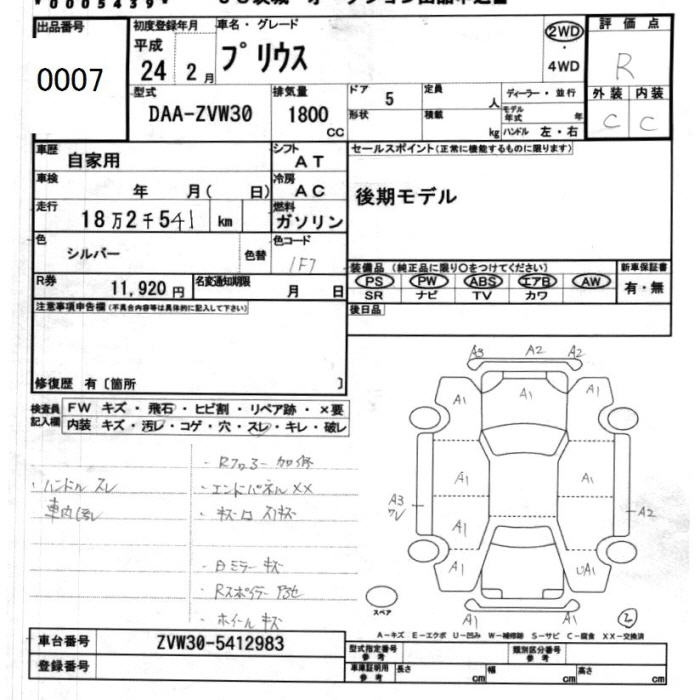 00005439
出品番号
0007
初度登録年月
平成
24 2月
車名・グレード
プリウス
2WD
・
4WD
評価点
R
型式
DAA-ZVW30
排気量
1800
cc
ドア 5
形状
定員 人
積載 kg
ディーラー・並行
モデル年式 年
ハンドル 左・右
外装 内装
C C
車歴 自家用
車検 年 月( 日)
走行 18万2千541 km
色 シルバー 色替
シフト AT
冷房 AC
燃料 ガソリン
色コード 1F7
セールスポイント(正常に機能するものに限ります)
後期モデル
R券 11,920円
名変通知期限 月 日
装備品 (純正品に限り○をつけてください)
PS PW ABS エアB AW
SR ナビ TV カワ
新車保証書
有・無
後日品
注意事項申告欄(不具合内容等は具体的に記入して下さい)
修復歴 有〔箇所 〕
検査員記入欄
FW キズ・飛石・ヒビ割・リペア跡・×要
内装 キズ・汚レ・コゲ・穴・スレ・キレ・破レ
・ハンドル スレ
・Rフロアー 加修
・エンドパネル XX
・キズ凹 スリキズ
・白ミラー キズ
・ホイール キズ
A3 A2 A2
A1 A1 A1
A1 A1
A3
A2
A1
A1 A1 UA1
A1 A1
スペア
2
A-キズ E-エクボ U-凹み W-補修跡 S-サビ C-腐食 XX-交換済
車台番号 ZVW30-5412983
登録番号
型式指定番号
参考
類別区分番号
参考
車庫証明用
参考
長さ cm 幅 cm 高さ cm